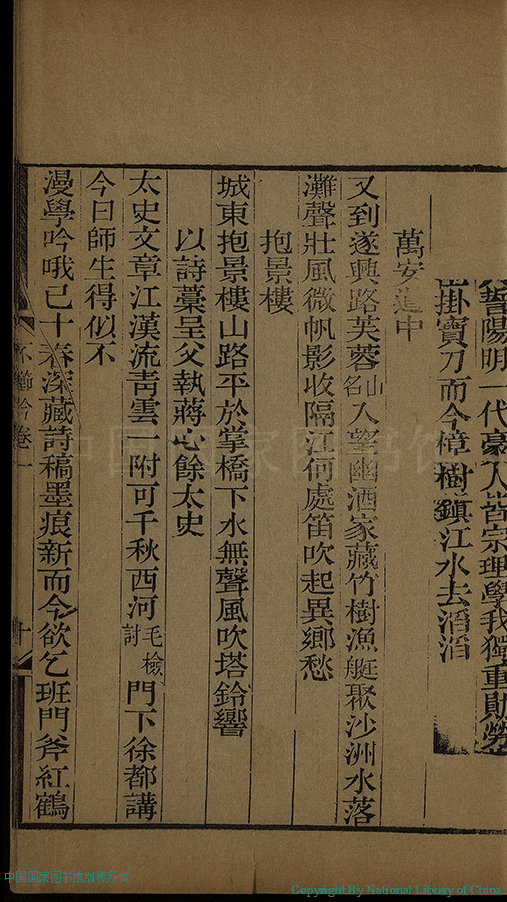 誓陽明一代豪人皆宗理學我獨重勛勞
掛寶刀而今樟樹鎮江水去滔滔
萬安道中
又到遂興路芙蓉山名入望幽酒家藏竹樹漁艇聚沙洲水落
灘聲壯風微帆影收隔江何處笛吹起異鄉愁
抱景樓
城東抱景樓山路平於掌橋下水無聲風吹塔鈴響
以詩藁呈父執蔣心餘太史
太史文章江漢流青雲一附可千秋西河毛檢討門下徐都講
今日師生得似不
漫學吟哦已十春深藏詩稿墨痕新而今欲乞班門斧紅鶴
不櫛吟卷一
十
中国国家图书馆
中国国家图书馆版权所有
Copyright By National Library of China